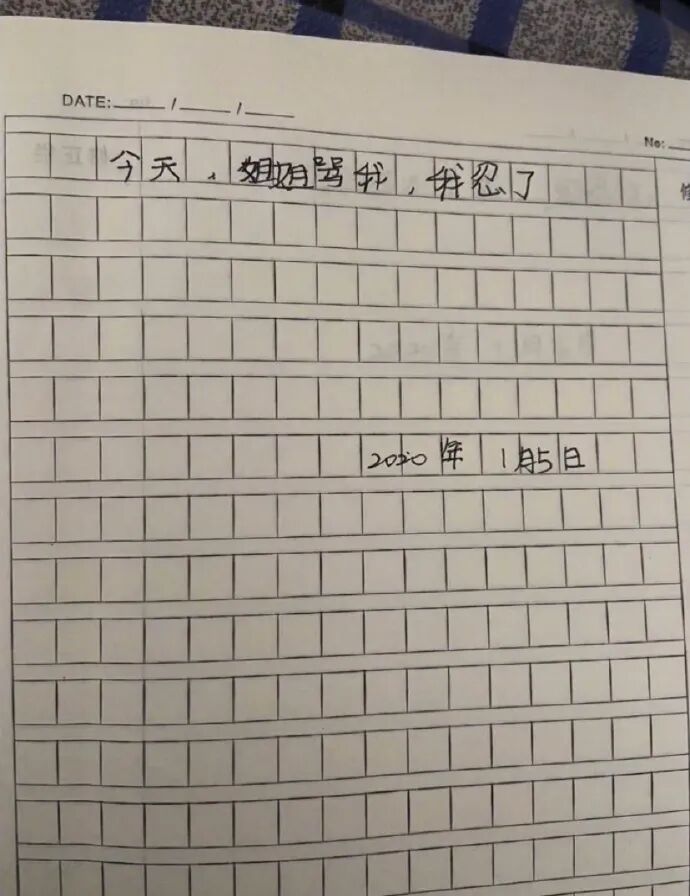 DATE: ___/___/___
No:
今天，姐姐骂我，我忍了
2020年 1月5日